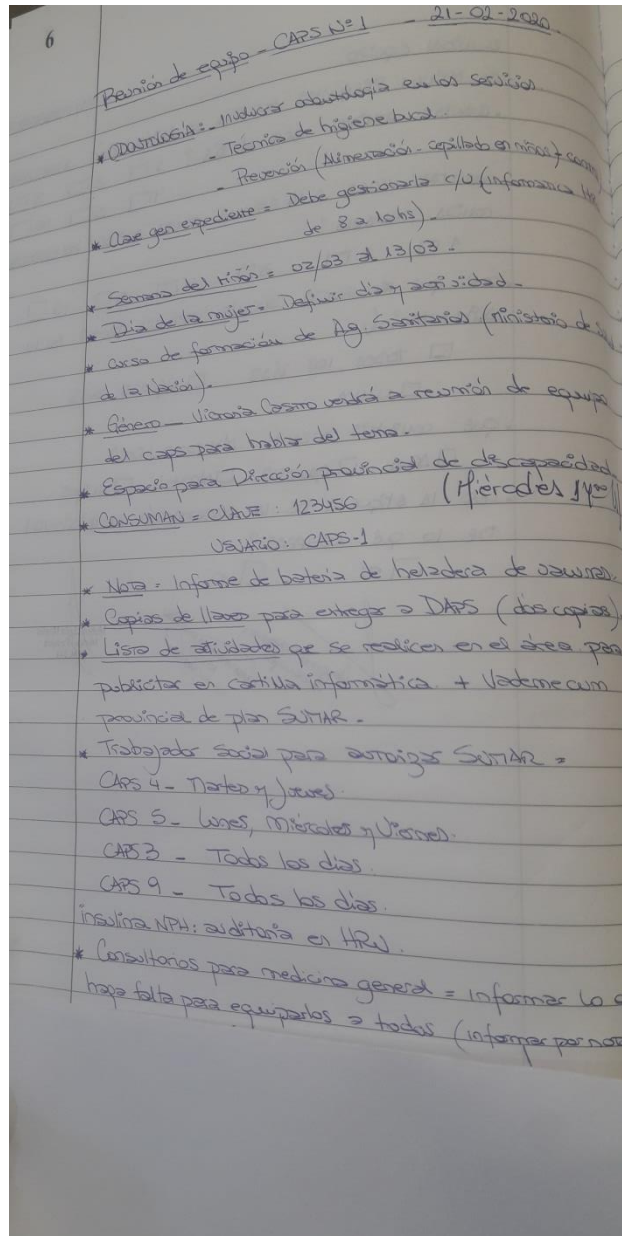 6
Reunión de equipo - CAPS Nº 1 - 21-02-2020
* Odontología: - Involucrar odontología en los servicios
- Técnica de higiene bucal.
- Prevención (Alimentación - cepillado en niños) +
* Clave gen expediente = Debe gestionarla c/u (informática
de 8 a 10hs).
* Semana del riñón = 02/03 al 13/03.
* Día de la mujer = Definir día y actividad.
* curso de formación de Ag. Sanitarios (Ministerio de
de la Nación).
* Género - Victoria Cosmo vendrá a reunión de equipo
del caps para hablar del tema.
* Espacio para Dirección provincial de discapacidad
(Miércoles
* CONSUMAN = CLAVE : 123456
USUARIO: CAPS-1
* Nota = Informe de batería de heladera de
* Copias de llaves para entregar a DAPS (dos copias)
* Lista de atividades que se realicen en el área para
publicitar en cartilla informática + Vademecum
provincial de plan SUMAR.
* Trabajador Social para autorizar SUMAR =
CAPS 4 - Martes y Jueves.
CAPS 5 - Lunes, Miércoles y Viernes.
CAPS 3 - Todos los días.
CAPS 9 - Todos los días.
insulina NPH: auditoría en
* Consultorios para medicina general = informar lo
haga falta para equiparlos a todos (informar por